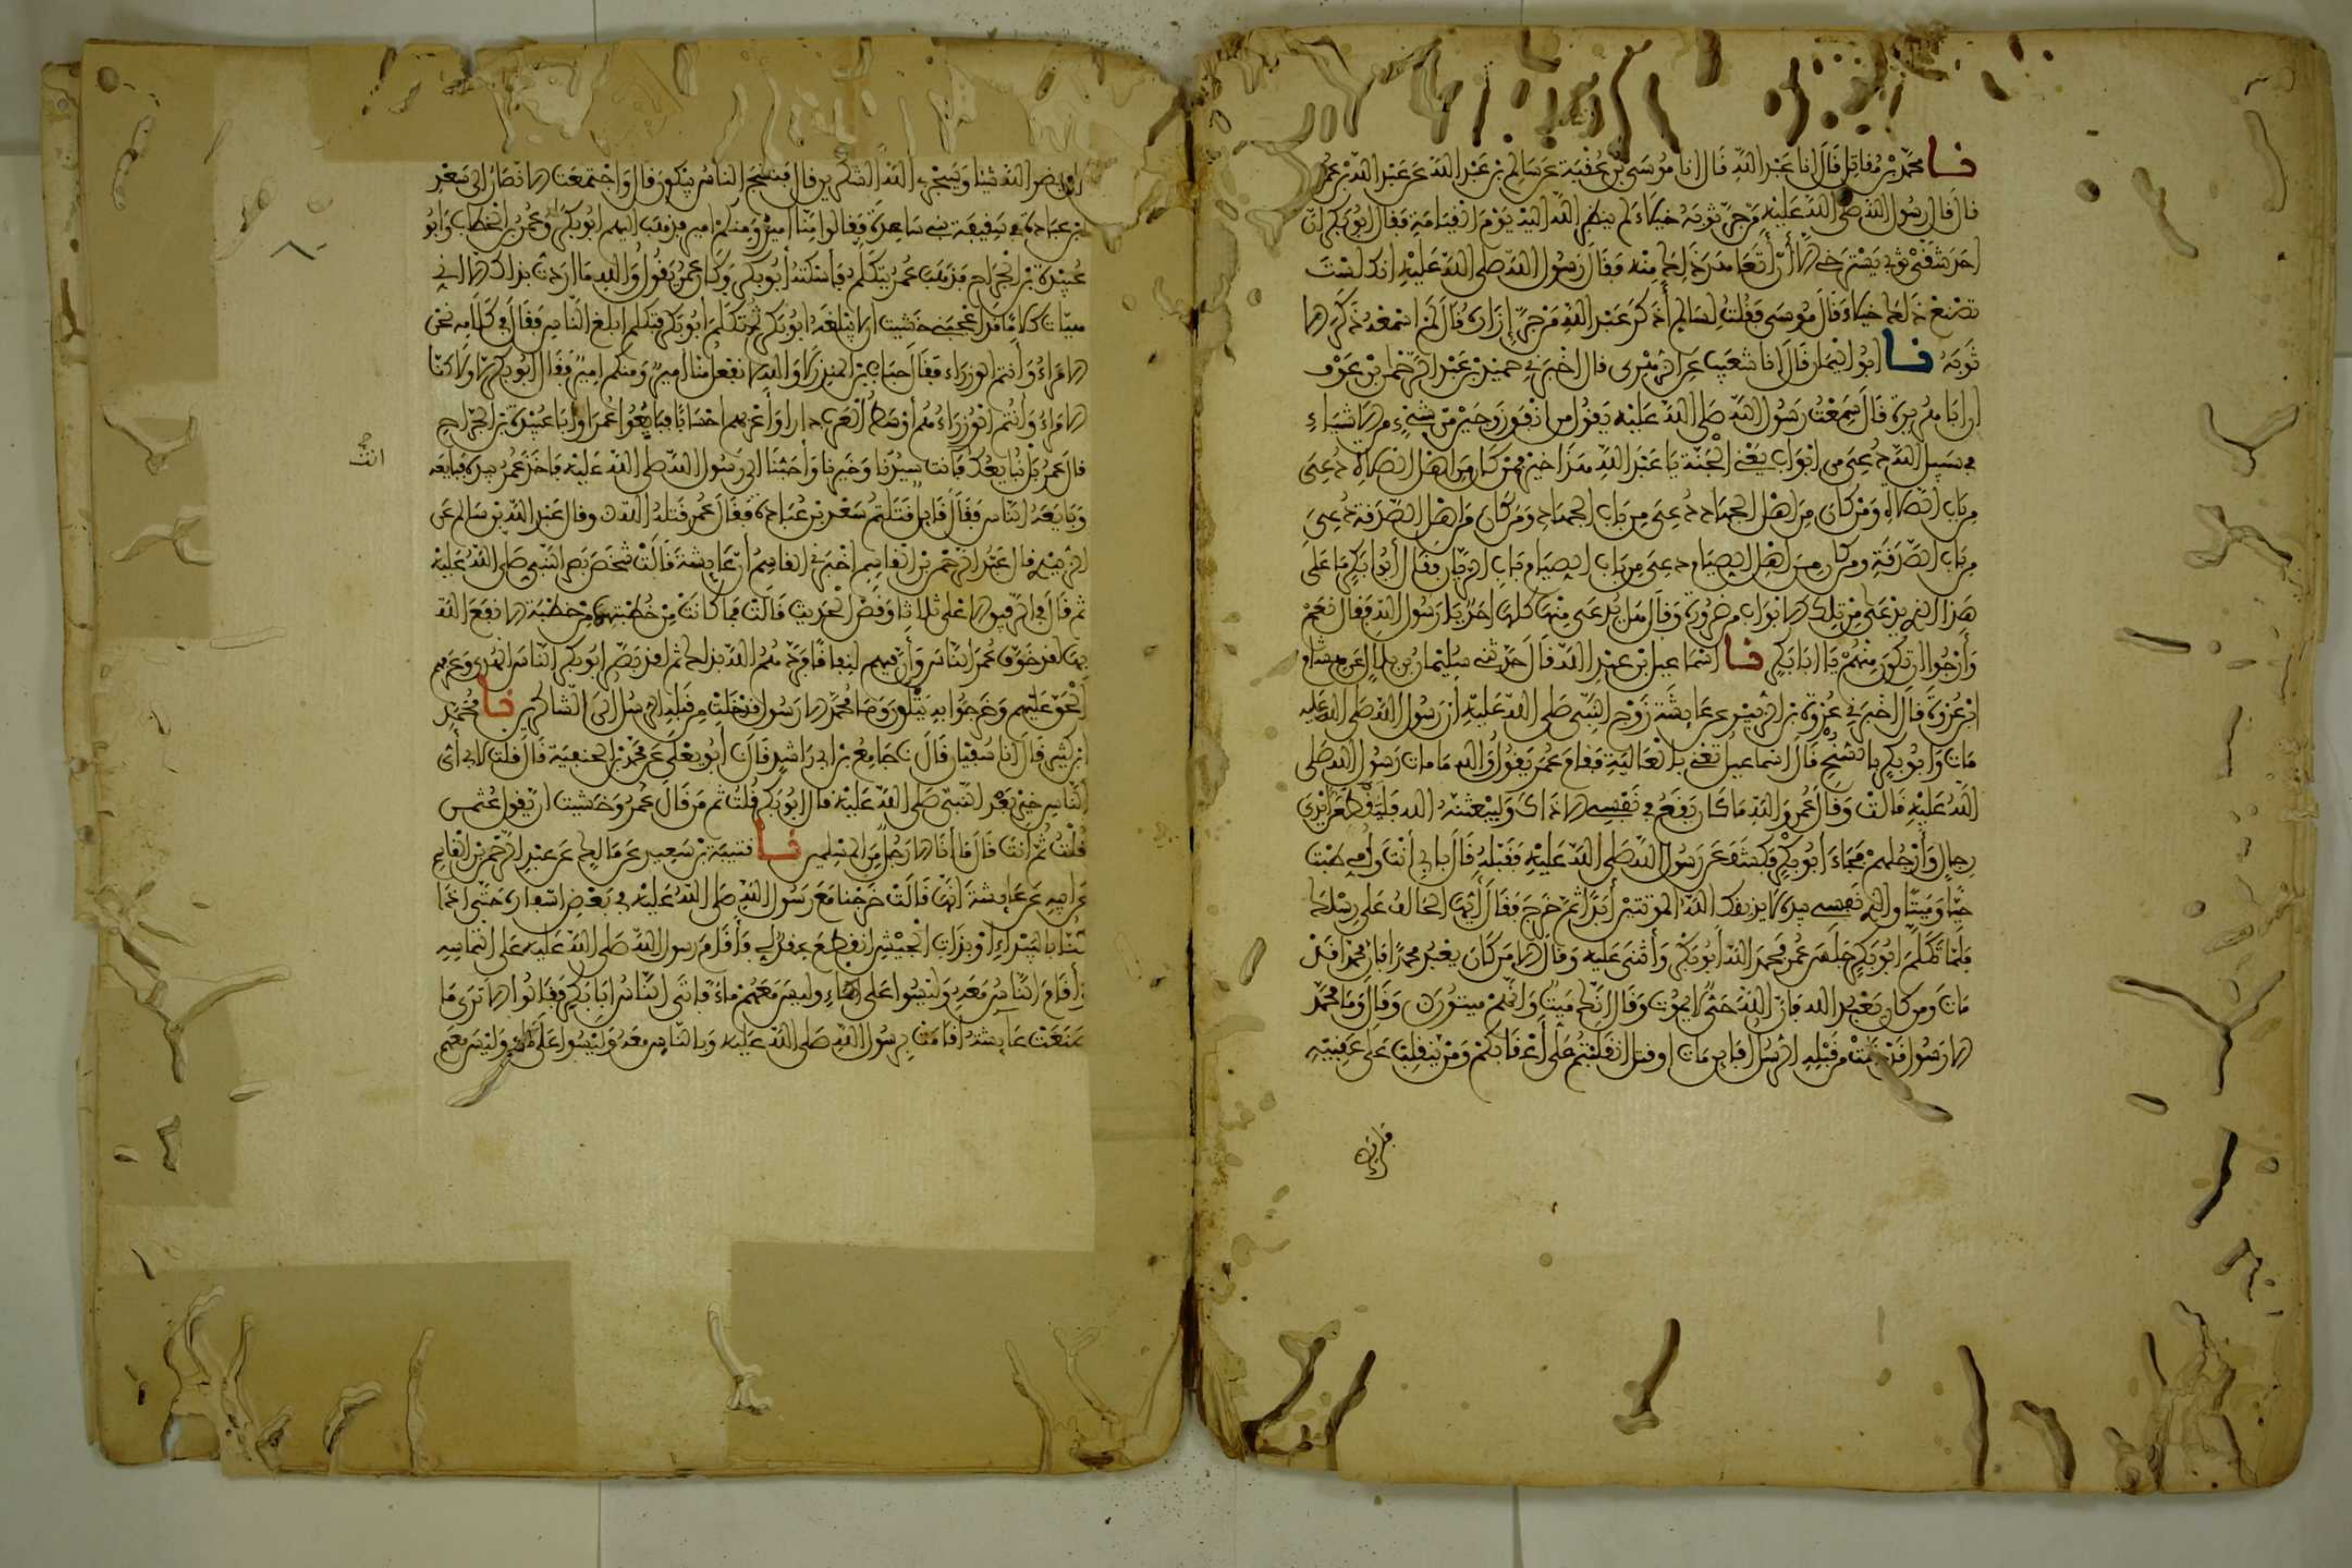 نا محمد بن مقاتل قال انا عبد الله قال انا موسى بن عقبة عن سالم بن عبد الله عن عبد الله بن عمر
قال قال رسول الله صلى الله عليه من جر ثوبه خيلاء لم ينظر الله اليه يوم القيامة فقال ابو بكر ان
احد شقي ثوبي يسترخي الا أن أتعاهد ذلك منه فقال رسول الله صلى الله عليه انك لست
تصنع ذلك خيلاء قال موسى فقلت لسالم أذكر عبد الله من جر إزاره قال لم اسمعه ذكر الا
ثوبه نا ابو اليمان قال انا شعيب عن الزهري قال اخبرني حميد بن عبد الرحمن بن عوف
ان ابا هريرة قال سمعت رسول الله صلى الله عليه يقول من انفق زوجين من شيء من الاشياء
في سبيل الله دعي من ابواب يعني الجنة يا عبد الله هذا خير فمن كان من اهل الصلاة دعي
من باب الصلاة ومن كان من اهل الجهاد دعي من باب الجهاد ومن كان من اهل الصدقة دعي
من باب الصدقة ومن كان من اهل الصيام دعي من باب الصيام وباب الريان فقال أبو بكر ما على
هذا الذي يدعى من تلك الابواب من ضرورة وقال هل يدعى منها كلها احد يا رسول الله فقال نعم
وأرجوا ان تكون منهم يا ابا بكر نا اسماعيل بن عبد الله قال حدثني سليمان بن بلال عن هشام
ابن عروة قال اخبرني عروة بن الزبير عن عايشة زوج النبي صلى الله عليه أن رسول الله صلى الله عليه
مات وابو بكر بالسنح قال اسماعيل تعني بالعالية فقام عمر يقول والله ما مات رسول الله صلى
الله عليه قالت وقال عمر والله ما كان يقع في نفسي الا ذاك وليبعثنه الله فليقطعن ايدي
رجال وأرجلهم فجاء ابو بكر فكشف عن رسول الله صلى الله عليه فقبله قال بابي أنت وأمي طبت
حيا وميتا والذي نفسي بيده لا يذيقك الله الموتتين أبدا ثم خرج فقال أيها الحالف على رسلك
فلما تكلم ابو بكر جلس عمر فحمد الله أبو بكر وأثنى عليه وقال الا من كان يعبد محمدا فان محمدا قد
مات ومن كان يعبد الله فان الله حي لا يموت وقال انك ميت وانهم ميتون وقال وما محمد
الا رسول قد خلت من قبله الرسل أفاين مات او قتل انقلبتم على أعقابكم ومن ينقلب على عقبيه
فلن يضر الله شيئا وسيجزي الله الشكرين قال فنشج الناس يبكون قال واجتمعت الانصار الى سعد
بن عبادة في سقيفة بني ساعدة فقالوا منا أمير ومنكم امير فذهب اليهم ابو بكر وعمر بن الخطاب وابو
عبيدة بن الجراح فذهب عمر يتكلم فأسكته أبو بكر وكان عمر يقول والله ما اردت بذاك الا اني
هيات كلاما قد اعجبني خشيت ان لا يبلغه ابو بكر ثم تكلم ابو بكر فتكلم ابلغ الناس فقال في كلامه نحن
الامراء وأنتم الوزراء فقال حباب بن المنذر لا والله لا نفعل منا أمير ومنكم امير فقال ابو بكر لا ولاكنا
الامراء وأنتم الوزراء هم أوسط العرب دارا وأعربهم احسابا فبايعوا عمر او أبا عبيدة بن الجراح
قال عمر بل نبايعك فأنت سيدنا وخيرنا وأحبنا الى رسول الله صلى الله عليه فاخذ عمر بيده فبايعه
انت
وبايعه الناس فقال قايل قتلتم سعد بن عبادة فقال عمر قتله الله وقال عبد الله بن سالم عن
الزبيدي قال عبد الرحمن بن القاسم اخبرني القاسم أن عايشة قالت شخص بصر النبي صلى الله عليه
ثم قال في الرفيق الاعلى ثلاثا وقص الحديث قالت فما كانت من خطبتهما من خطبة الا نفع الله
بها لقد خوف عمر الناس وأن فيهم لنفاقا فردهم الله بذلك ثم لقد بصر ابو بكر الناس الهدى وعرفهم
الحق عليهم وخرجوا به يتلون وما محمد الا رسول قد خلت من قبله الرسل الى الشاكرين نا محمد
ابن كثير قال انا سفيان قال نا جامع بن ابي راشد قال نا أبو يعلى عن محمد بن الحنفية قال قلت لابي أي
الناس خير بعد النبي صلى الله عليه قال ابو بكر قلت ثم من قال عمر وخشيت ان يقول عثمن
قلت ثم انت قال ما أنا الا رجل من المسلمين نا قتيبة بن سعيد عن مالك عن عبد الرحمن بن القاسم
عن ابيه عن عايشة انها قالت خرجنا مع رسول الله صلى الله عليه في بعض اسفاره حتى اذا
كنا بالبيداء او بذات الجيش انقطع عقد لي فأقام رسول الله صلى الله عليه على التماسه
وأقام الناس معه وليسوا على ماء وليس معهم ماء فاتى الناس ابا بكر فقالوا الا ترى ما
صنعت عايشة أقامت برسول الله صلى الله عليه وبالناس معه وليسوا على ماء وليس معهم